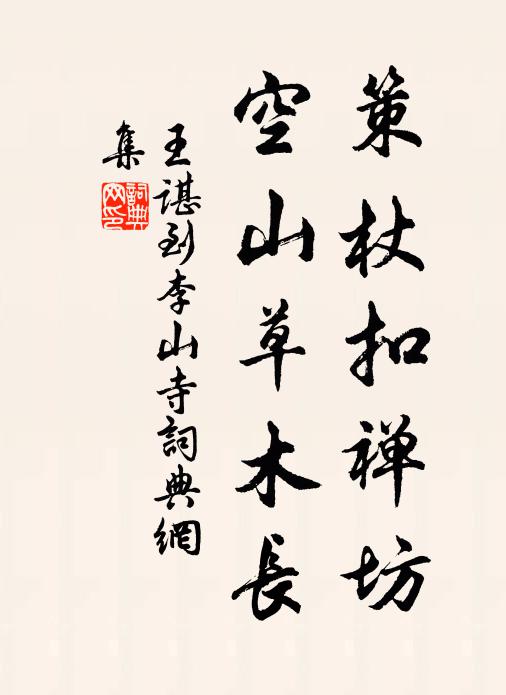 策杖扣禅坊
空山草木長
王諶到李山寺詞典網
集
詞典网印